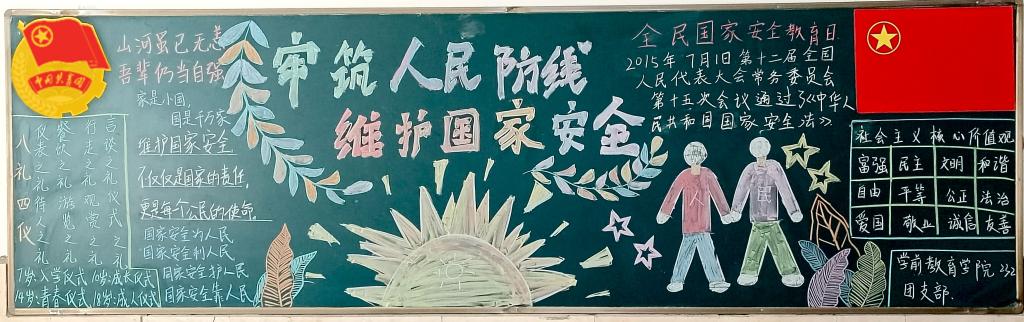 中国共青团
山河虽已无恙
吾辈仍当自强
家是小国,
国是千万家
维护国家安全
不仅仅是国家的责任,
更是每个公民的使命.
国家安全为人民
国家安全利人民
国家安全护人民
国家安全靠人民
八礼四仪
仪表之礼
餐饮之礼
行走之礼
言谈之礼
待人之礼
游览之礼
观赏之礼
仪式之礼
7岁:入学仪式 10岁:成长仪式
14岁:青春仪式 18岁:成人仪式
牢筑人民防线
维护国家安全
全民国家安全教育日
2015年7月1日第十二届全国
人民代表大会常务委员会
第十五次会议通过了《中华人
民共和国国家安全法》
人 民
社会主义核心价值观
富强 民主 文明 和谐
自由 平等 公正 法治
爱国 敬业 诚信 友善
学前教育学院232
团支部.